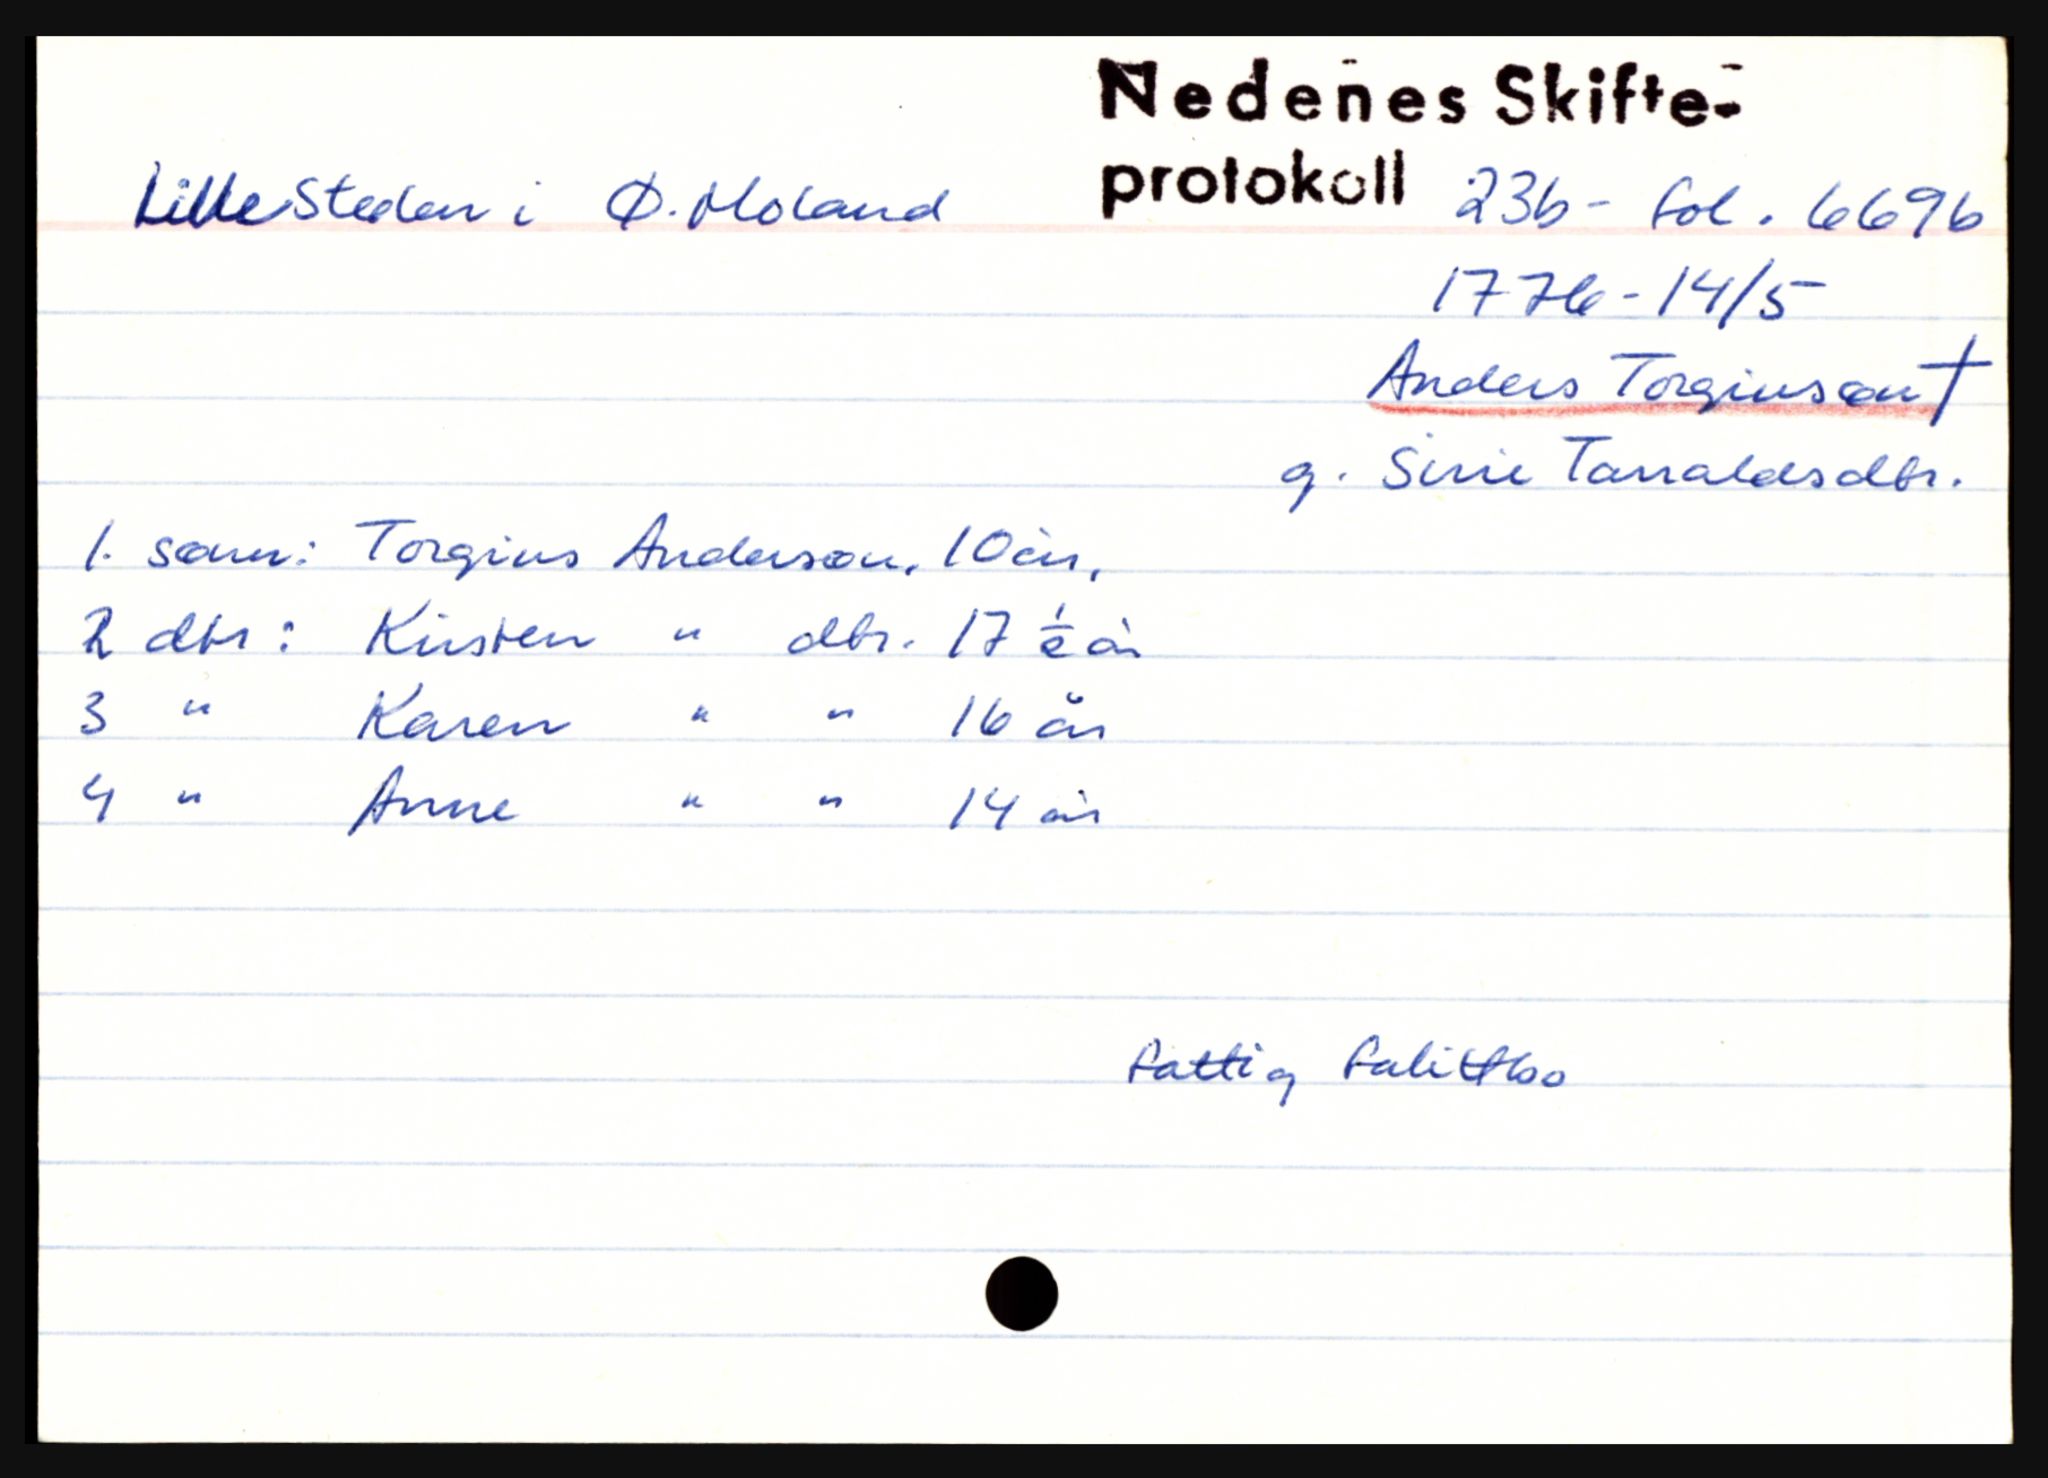 Nedenes Skifte-
protokoll 23b - fol. 669b
Lille Steden i Ø. Moland
1776 - 14/5
Anders Torgiusøn †
g. Sirie Tarraldsdtr.
1. sønn: Torgius Andersøn, 10 år,
2 dtr: Kirsten " dtr. 17 ½ år
3 " Karen " " 16 år
4 " Anne " " 14 år
fattig falittbo